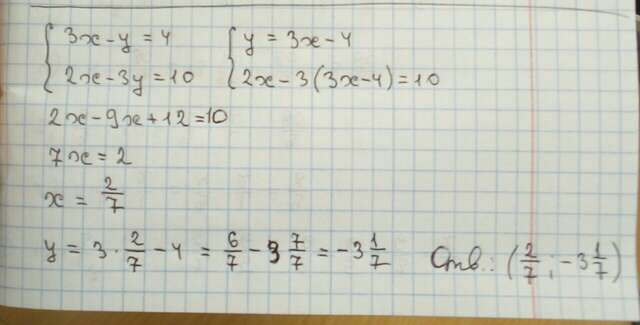 { 3x - y = 4 { y = 3x - 4
{ 2x - 3y = 10 { 2x - 3(3x - 4) = 10
2x - 9x + 12 = 10
7x = 2
x = 2/7
y = 3 · 2/7 - 4 = 6/7 - 3 7/7 = -3 1/7 Отв.: (2/7 ; -3 1/7)